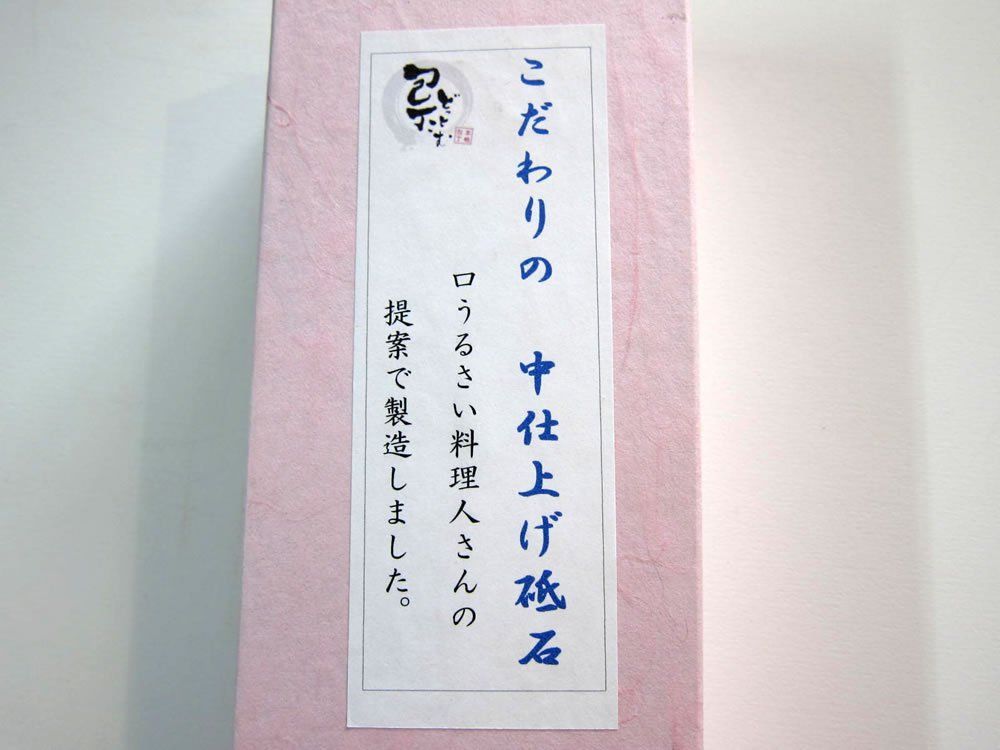 こだわりの 中仕上げ砥石
口うるさい料理人さんの
提案で製造しました。
包丁
どっとこむ
本職
包丁